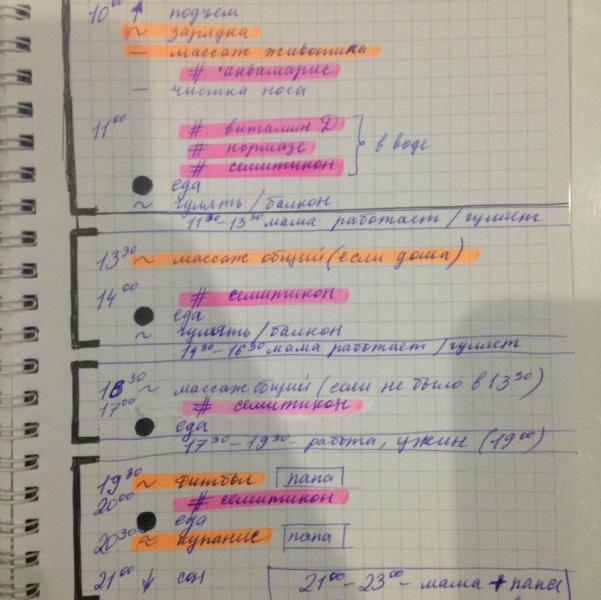 10⁰⁰ ↑ подъем
~ зарядка
— массаж животика
# аквамарис
— чистка носа
11⁰⁰ # витамин Д
# нормазе } в воде
# семитикон
● еда
~ гулять / балкон
11³⁰ - 13³⁰ мама работает / гуляет
13³⁰ ~ массаж общий (если дома)
14⁰⁰ # семитикон
● еда
~ гулять / балкон
14³⁰ - 16³⁰ мама работает / гуляет
16³⁰ ~ массаж общий (если не было в 13³⁰)
17⁰⁰ # семитикон
● еда
17³⁰ - 19³⁰ - работа, ужин (19⁰⁰)
19³⁰ ~ фитбол папа
20⁰⁰ # семитикон
● еда
20³⁰ ≈ купание папа
21⁰⁰ ↓ сон 21⁰⁰ - 23⁰⁰ - мама + папа